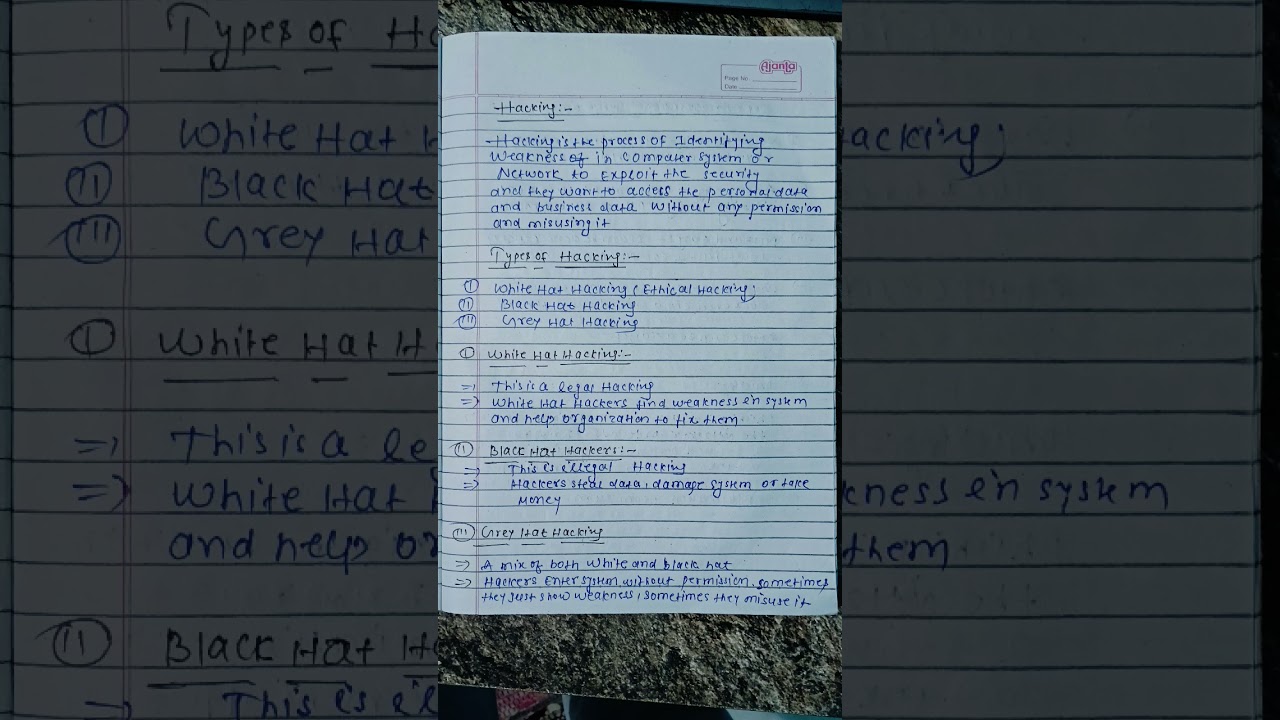 Ajanta
Page No
Date
Hacking:-
Hacking is the process of Identifying
weakness of in computer system or
Network to Exploit the security
and they want to access the personal data
and business data without any permission
and misusing it
Types of Hacking:-
I White Hat Hacking (Ethical Hacking)
II Black Hat Hacking
III Grey Hat Hacking
I White Hat Hacking:-
=> This is a legal Hacking
=> White Hat Hackers find weakness in system
and help organization to fix them
II Black Hat Hackers:-
=> This is illegal Hacking
=> Hackers steal data, damage system or take
Money
III Grey Hat Hacking
=> A mix of both white and black hat
=> Hackers Enter system without permission, sometimes
they just show weakness, sometimes they misuse it
Types of Ha
I White Hat H
acking)
II Black Hat
III Grey Hat
I White Hat H
=> This is a le
=> White Hat
kness in system
and help or
them
II Black Hat H
=> This is ill